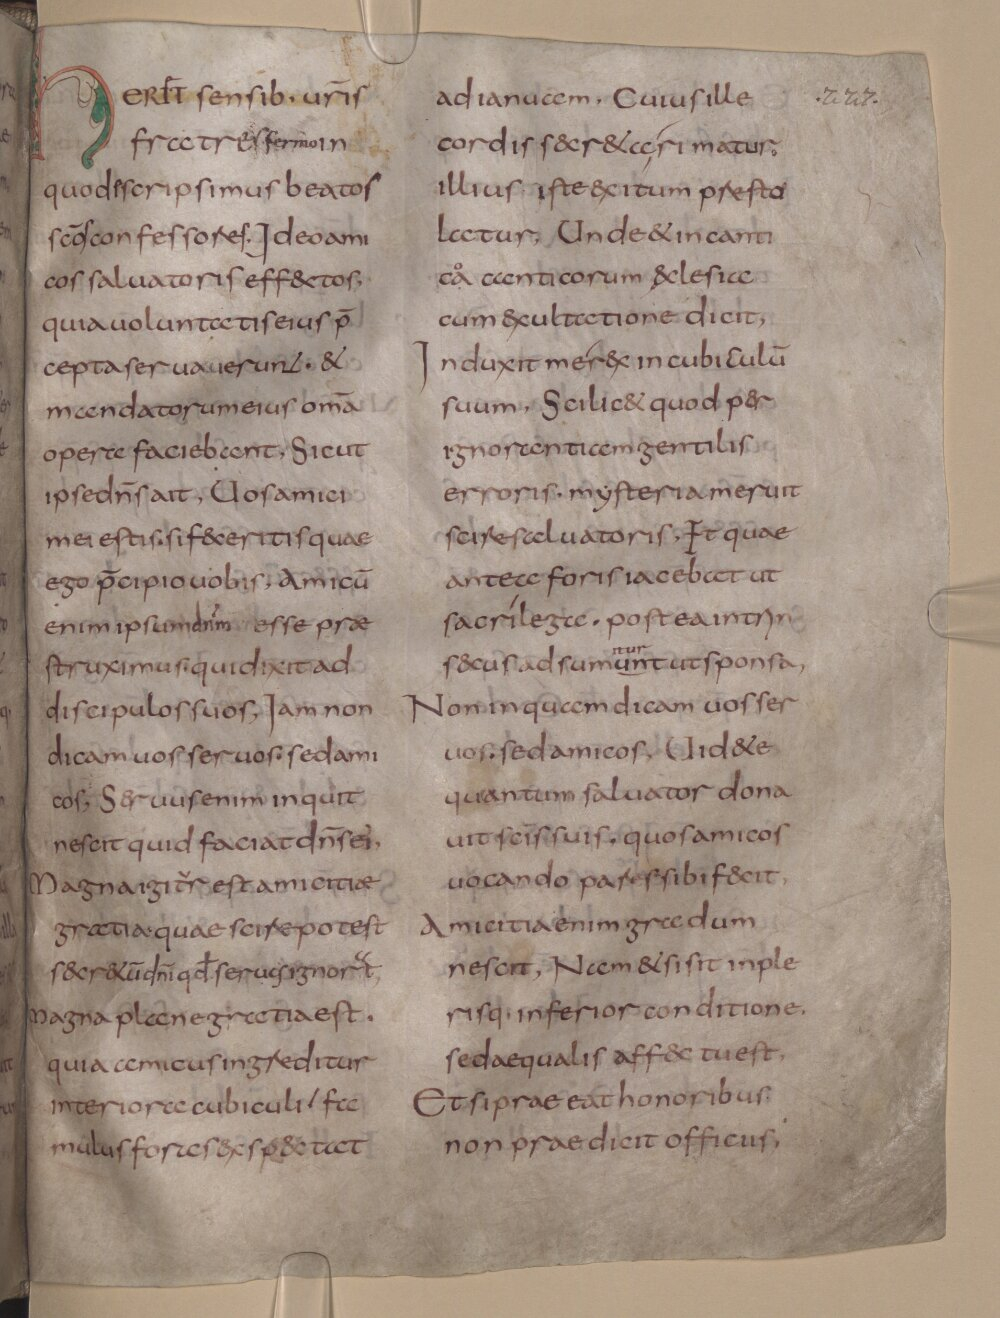 HERET sensib. uris
fratres sermo in
quo descripsimus beatos
scos confessores. Ideo ami
cos saluatoris effectos,
quia uoluntatis eius p̄
cepta seruauerunt. &
mandatorum eius omā
opera faciebant, Sicut
ipse dn̄s ait, Uos amici
mei estis. si feceritis quae
ego p̄cipio uobis, Amicū
enim ipsum dnm esse prae
struximus. qui dixit ad
discipulos suos, Iam non
dicam uos seruos. sed ami
cos, Seruus enim inquit
nescit quid faciat dn̄s ei;
Magna igitur est amicitiae
gratia. quae scire potest
secretū dn̄i qd seruus ignorat,
Magna plane gratia est.
quia amicus ingreditur
interiora cubiculi / fa
mulus fores expectat
ad ianuam, Cuius ille
cordis secreta rimatur,
illius iste exitum praesto
latur, Unde & in canti
cā canticorum ecclesiae
cum exultatione dicit,
Induxit me rex in cubiculū
suum, Scilicet quod per
ignorantiam gentilis
erroris. mysteria meruit
scire saluatoris, Et quae
antea foris iacebat ut
sacrilega. postea intrin
secus adsumitur ut sponsa,
Non inquam dicam uos ser
uos. sed amicos, Uidete
quantum saluator dona
uit sc̄is suis. quos amicos
uocando pares sibi fecit,
Amicitia enim gradum
nescit, Nam & si sit in ple
risq. inferior conditione.
sed aequalis affectu est,
Et si praeeat honoribus.
non praedicit officiis,